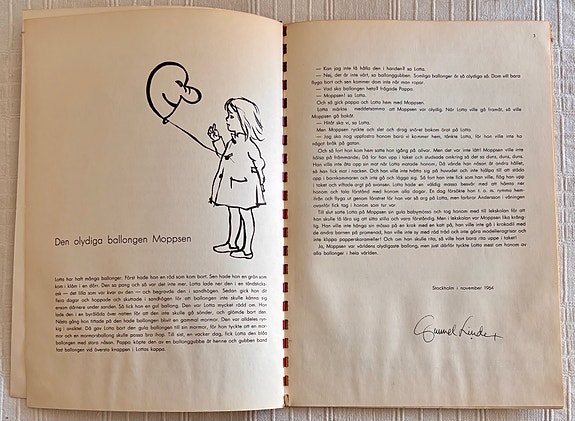 Den olydiga ballongen Moppsen
Lotta har haft många ballonger. Först hade hon en röd som kom bort. Sen hade hon en grön som
kom i kläm i en dörr. Den sa pang och så var det inte mer. Lotta lade ner den i en tändsticks-
ask — det lilla som var kvar av den — och begravde den i sandhögen. Sedan gick hon dit
flera dagar och hoppade och skuttade i sandhögen för att ballongen inte skulle känna sig
ensam därnere under sanden. Så fick hon en gul ballong. Den var Lotta mycket rädd om. Hon
lade den i en byrålåda över natten för att den inte skulle gå sönder, och glömde bort den.
Nästa gång hon tittade på den hade ballongen blivit en gammal mormor. Den var alldeles ryn-
kig i ansiktet. Då gav Lotta bort den gula ballongen till sin mormor, för hon tyckte att en mor-
mor och en mormorsballong skulle passa bra ihop. Till sist, en vacker dag, fick Lotta den blåa
ballongen med stora näsan. Pappa köpte den av en ballonggubbe åt henne och gubben band
fast ballongen vid översta knappen i Lottas kappa.
3
— Kan jag inte få hålla den i handen? sa Lotta.
— Nej, det är inte värt, sa ballonggubben. Somliga ballonger är så olydiga så. Dom vill bara
flyga bort och sen kommer dom inte när man ropar.
— Vad ska ballongen heta? frågade Pappa.
— Moppsen! sa Lotta.
Och så gick pappa och Lotta hem med Moppsen.
Lotta märkte meddetsamma att Moppsen var olydig. När Lotta ville gå framåt, så ville
Moppsen gå bakåt.
— Hitåt ska vi, sa Lotta.
Men Moppsen ryckte och slet och drog snöret bakom örat på Lotta.
— Jag ska nog upplostra honom bara vi kommer hem, tänkte Lotta, för hon ville inte ha
något bråk på gatan.
Och så fort hon kom hem satte hon igång på allvar. Men det var inte lätt! Moppsen ville inte
hälsa på främmande. Då for han upp i taket och studsade omkring så det sa duns, duns, duns.
Han ville inte äta opp sin mat när Lotta matade honom. Då vände han näsan åt andra hållet,
så han fick mat i nacken. Och han ville inte tvätta sig på huvudet och inte hjälpa till att städa
opp i barnkammaren och inte gå och lägga sig. Så fort han inte fick som han ville, flög han upp i
taket och viftade argt på svansen. Lotta hade en väldig massa besvär med att hämta ner
honom och tala förstånd med honom alla dagar. En dag försökte han t. o. m. rymma hem-
ifrån och flyga ut genom fönstret för han var så arg på Lotta, men farbror Andersson i våningen
ovanför fick tag i honom som tur var.
Till sist satte Lotta på Moppsen sin gula babymössa och tog honom med till lekskolan för att
han skulle få lära sig att sitta stilla och vara förståndig. Men i lekskolan var Moppsen lika kräng-
lig. Han ville inte hänga sin mössa på en krok med en katt på, han ville inte gå i krokodil med
de andra barnen på promenad, han ville inte sy med röd tråd och inte göra modelleragrisar och
inte klippa papperskarameller! Och om han skulle rita, så ville han bara rita uppe i taket!
Ja, Moppsen var världens olydigaste ballong, men just därför tyckte Lotta mest om honom av
alla ballonger i hela världen.
Stockholm i november 1964
Gunnel Linde